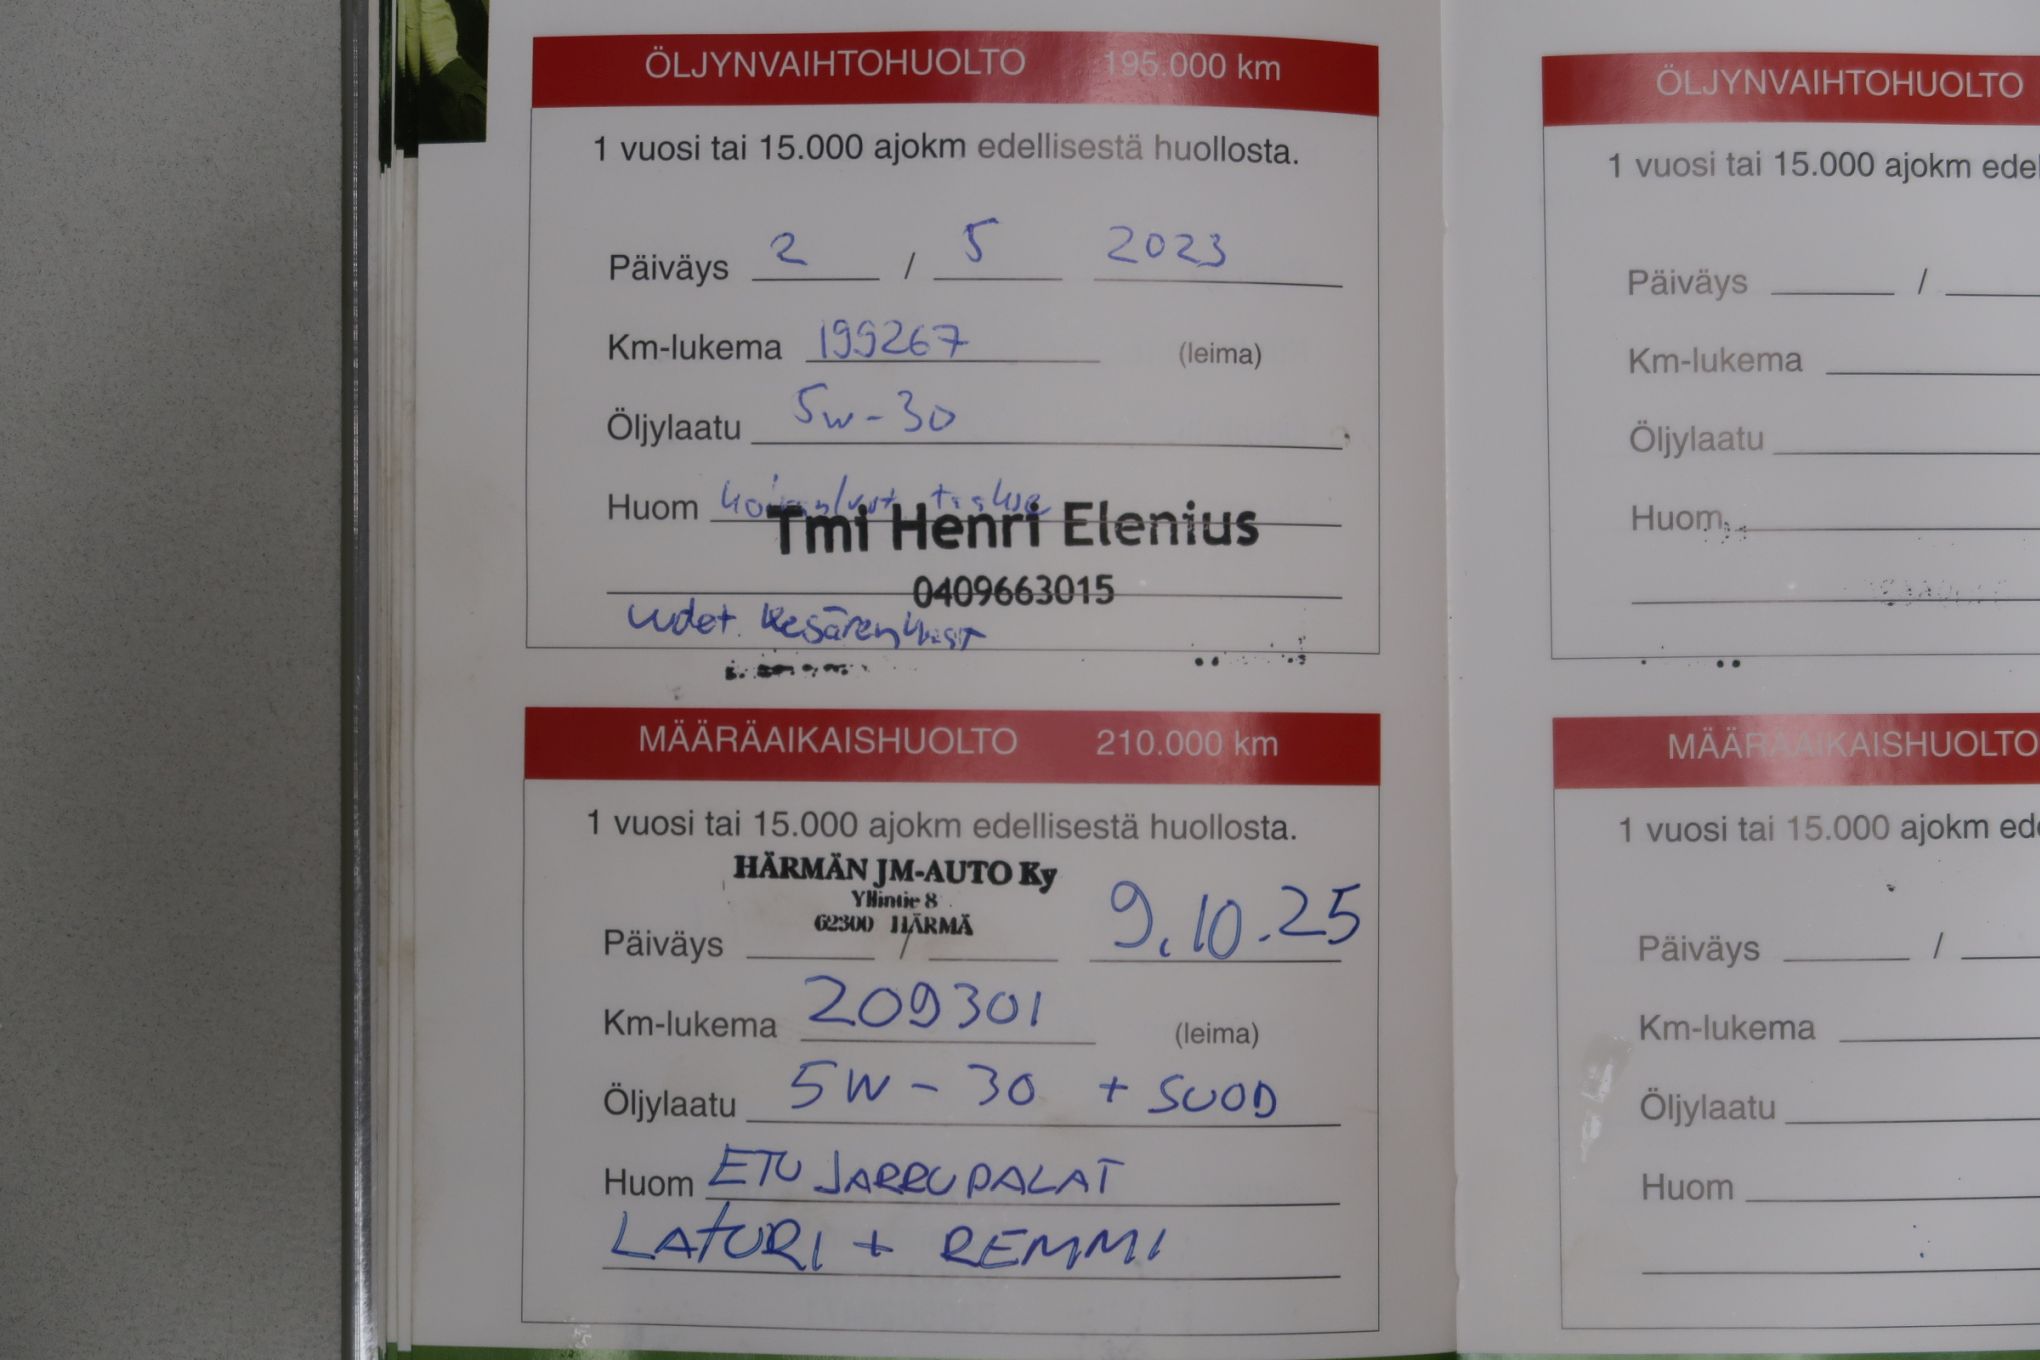 ÖLJYNVAIHTOHUOLTO 195.000 km
1 vuosi tai 15.000 ajokm edellisestä huollosta.
Päiväys 2 / 5 2023
Km-lukema 199267 (leima)
Öljylaatu 5w-30
Huom
Tmi Henri Elenius
0409663015
uudet
MÄÄRÄAIKAISHUOLTO 210.000 km
1 vuosi tai 15.000 ajokm edellisestä huollosta.
HÄRMÄN JM-AUTO Ky
8
62300 HÄRMÄ
Päiväys / 9.10.25
Km-lukema 209301 (leima)
Öljylaatu 5W-30 + SUOD
Huom ETUJARRUPALAT
LATURI + REMMI
ÖLJYNVAIHTOHUOLTO
1 vuosi tai 15.000 ajokm edel
Päiväys /
Km-lukema
Öljylaatu
Huom
MÄÄRÄAIKAISHUOLTO
1 vuosi tai 15.000 ajokm ede
Päiväys /
Km-lukema
Öljylaatu
Huom